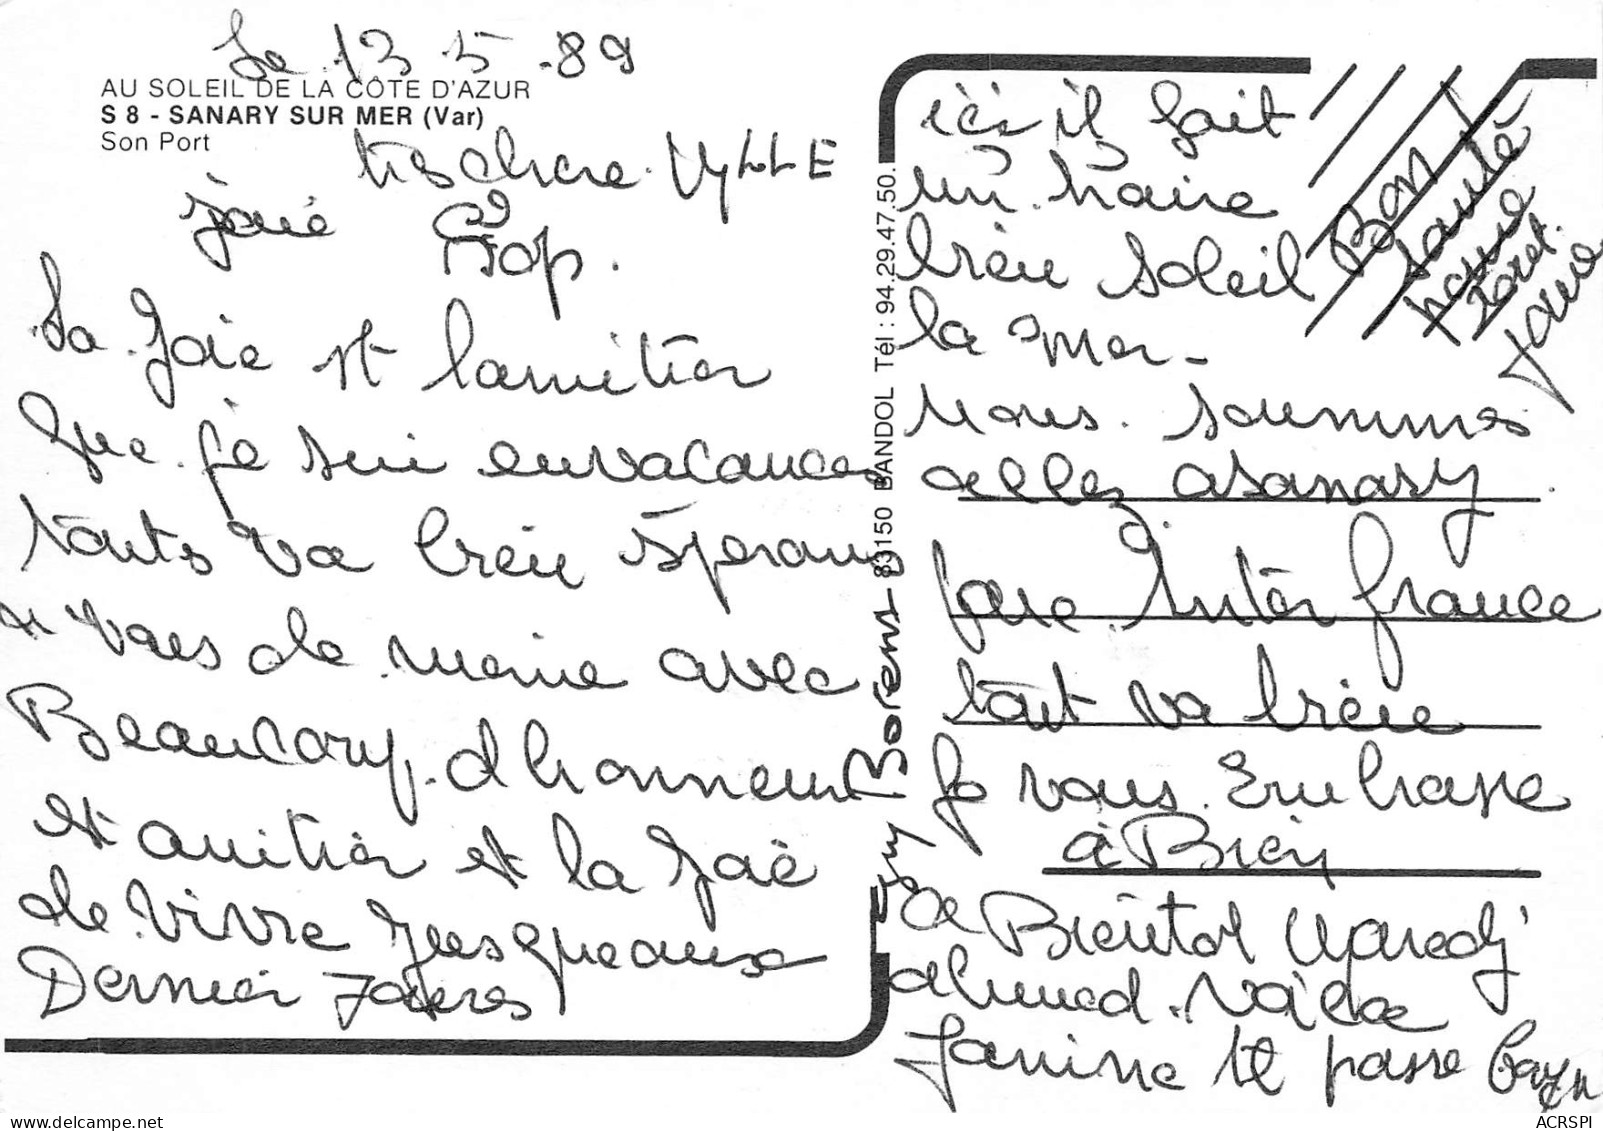 Le 13 5 89
AU SOLEIL DE LA CÔTE D'AZUR
S 8 - SANARY SUR MER (Var)
Son Port
tres chere
joue Pop.
La Joie et lamitier
que je sui envacances
touts va bien Esperans
et vous de meme avec
Beaucoup d honneur
et amitier et la Joie
de vivre Jusqueaux
Dernier Joures
83150 BANDOL Tél : 94.29.47.50.
ici il fait
un
bien soleil
la mer -
nous soummes
allez asanary
Inter france
tout va bien
Je vous Embrasse
à Bien
a Bientot
ahmed
Janine te passe
Bon
santé
ACRSPI